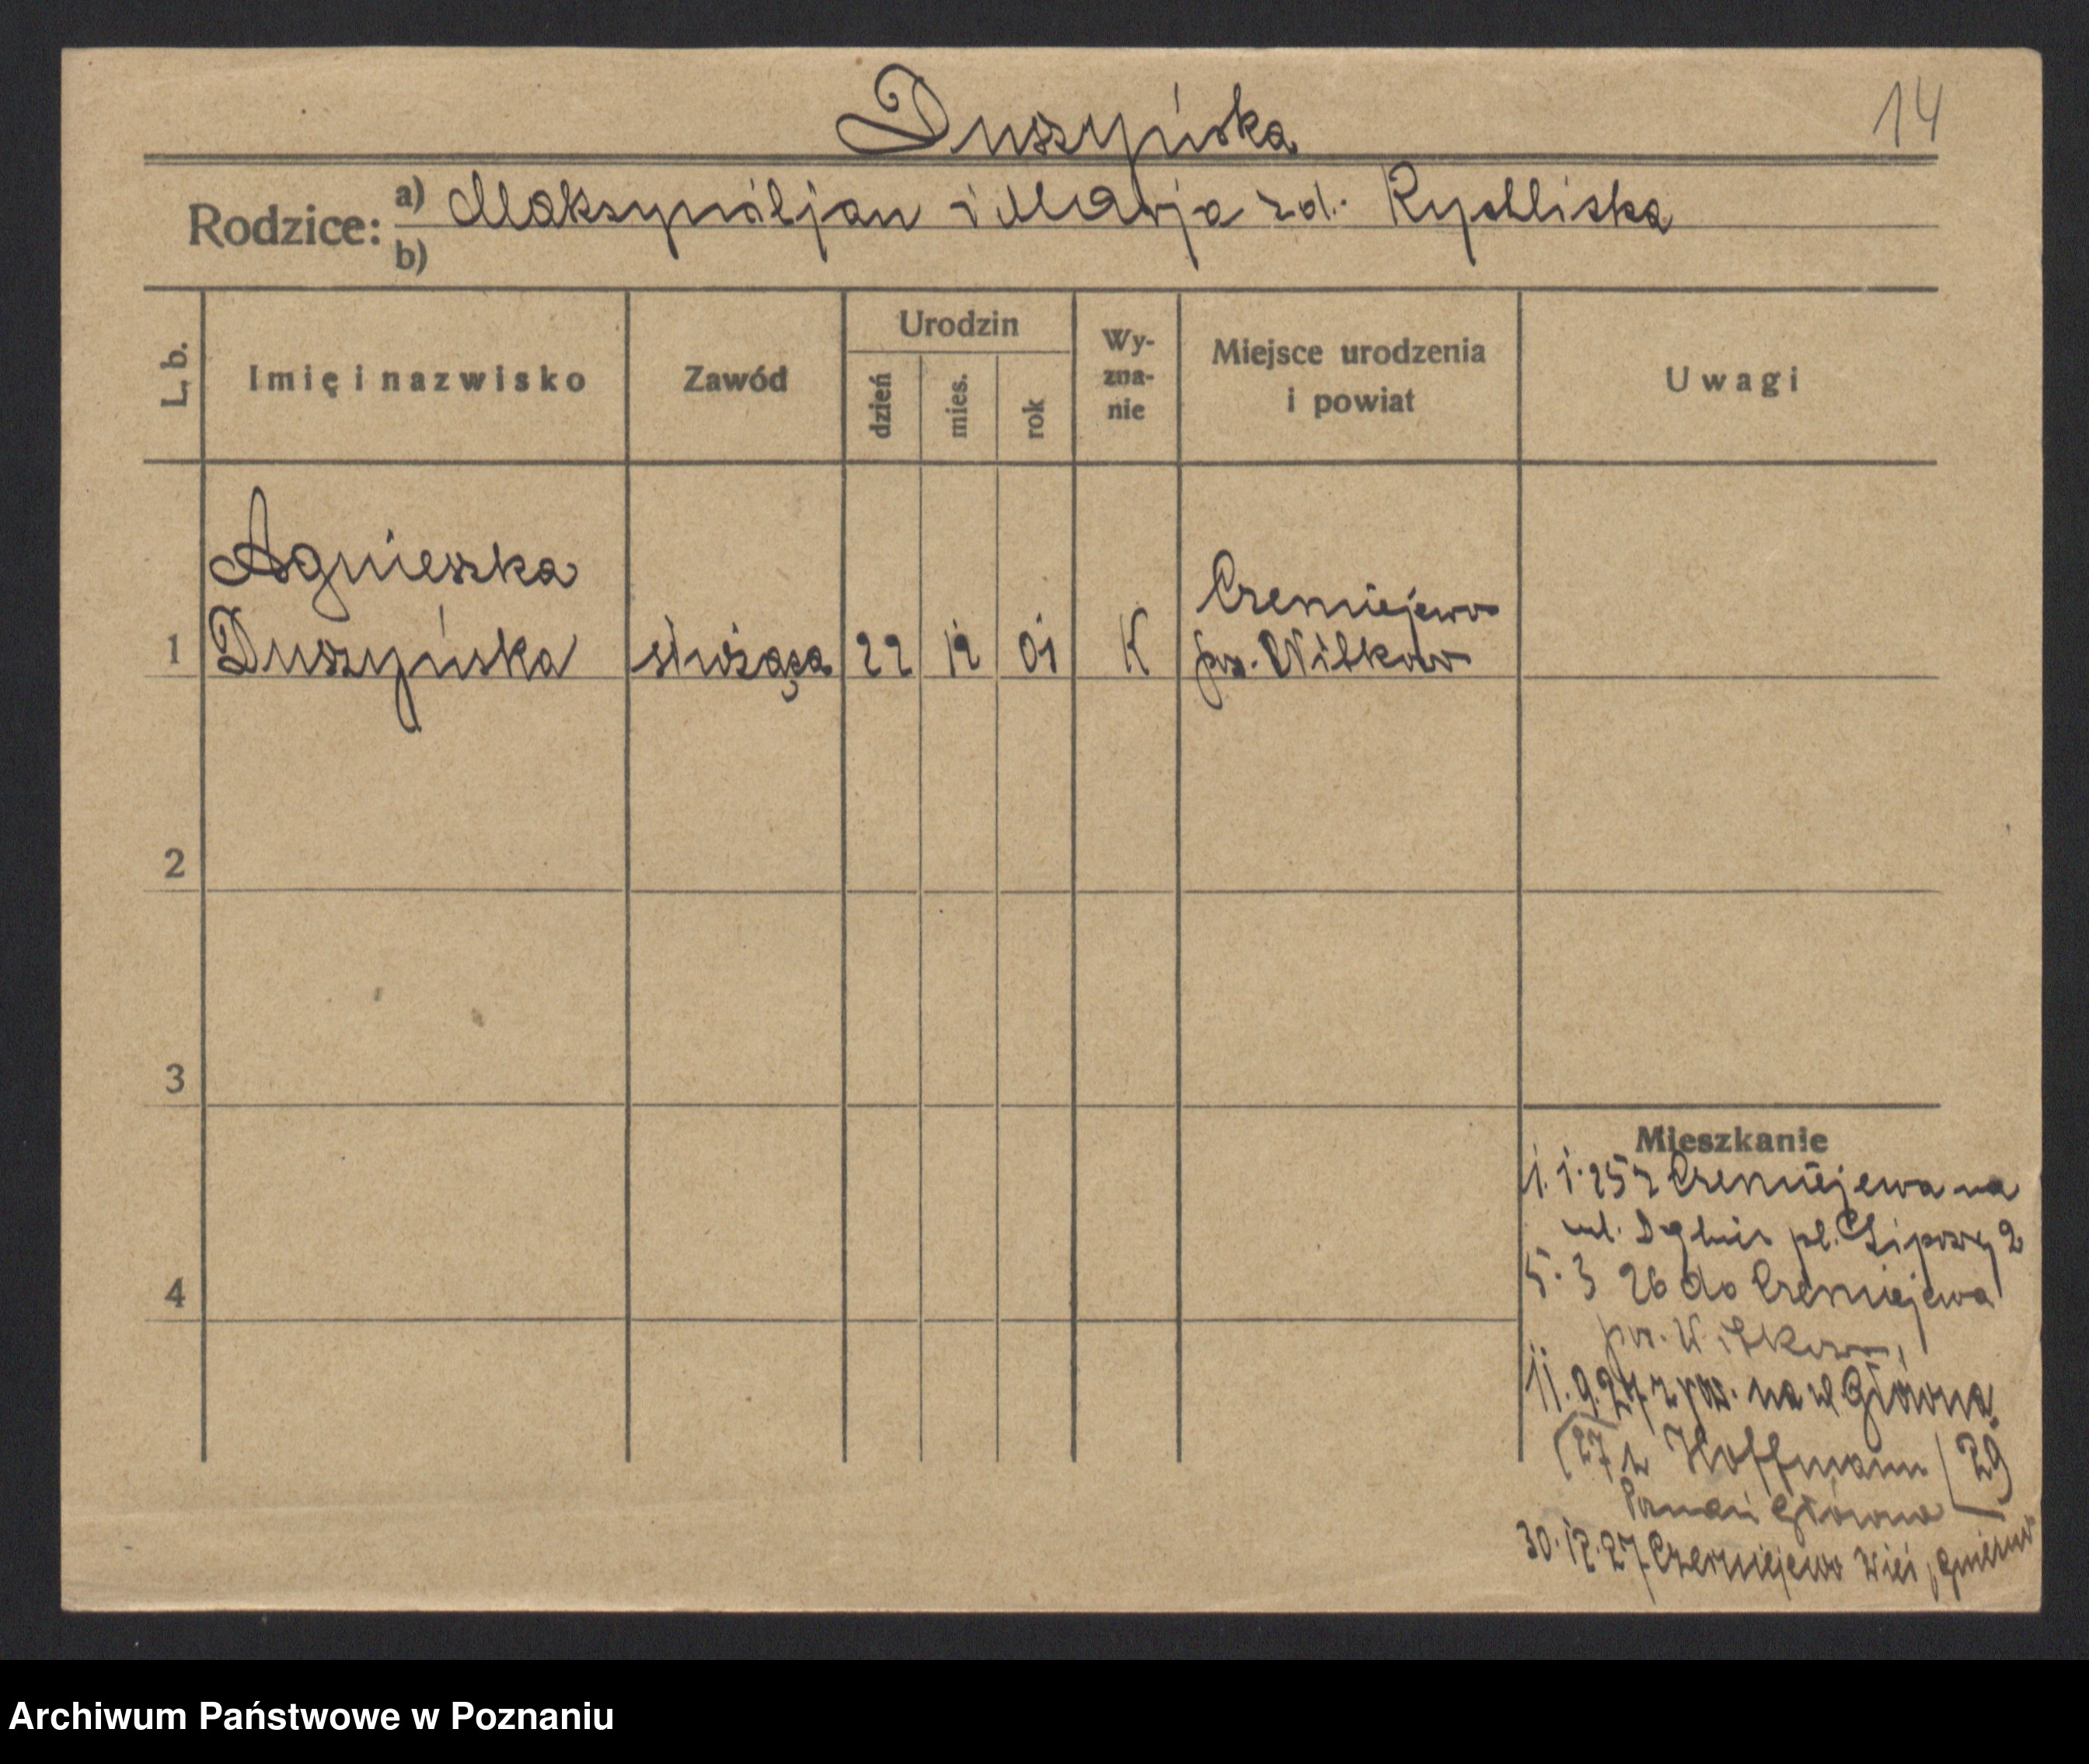 Duszyńska
14
Rodzice: a) Maksymiljan i Marja zd. Rychliska
b)
L. b.
Imię i nazwisko
Zawód
Urodzin
dzień
mies.
rok
Wy-
zna-
nie
Miejsce urodzenia
i powiat
Uwagi
Agnieszka
1 Duszyńska służąca 22 12 01 K
Czerniejewo
pow. Witkowo
2
3
4
Mieszkanie
1. 1. 25 z Czerniejewa na
ul. pl. Lipowy 2
5. 3 26 do Czerniejewa
pow. Witkowo,
11. 9. 27 z pow. na ul. Główna
27 Hoffmann 29
Poznań Główna
30. 12. 27 Czerniejewo Wieś,
Archiwum Państwowe w Poznaniu